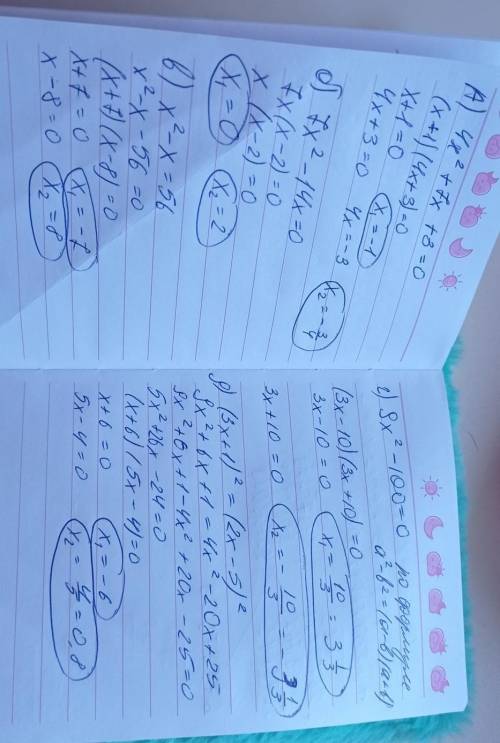 А) 4x² + 7x + 3 = 0
(x+1)(4x+3)=0
x+1=0 x₁=-1
4x+3=0 4x=-3 x₂=-3/4
б) 7x² - 14x = 0
7x(x-2)=0
x(x-2)=0
x₁=0 x₂=2
в) x² - x = 56
x² - x - 56 = 0
(x+7)(x-8)=0
x+7=0 x₁=-7
x-8=0 x₂=8
г) 9x² - 100 = 0 по формуле
a²-b²=(a-b)(a+b)
(3x-10)(3x+10)=0
3x-10=0 x₁=10/3=3 1/3
3x+10=0 x₂=-10/3=-3 1/3
д) (3x+1)² = (2x-5)²
9x²+6x+1=4x²-20x+25
9x²+6x+1-4x²+20x-25=0
5x²+26x-24=0
(x+6)(5x-4)=0
x+6=0 x₁=-6
5x-4=0 x₂=4/5=0,8